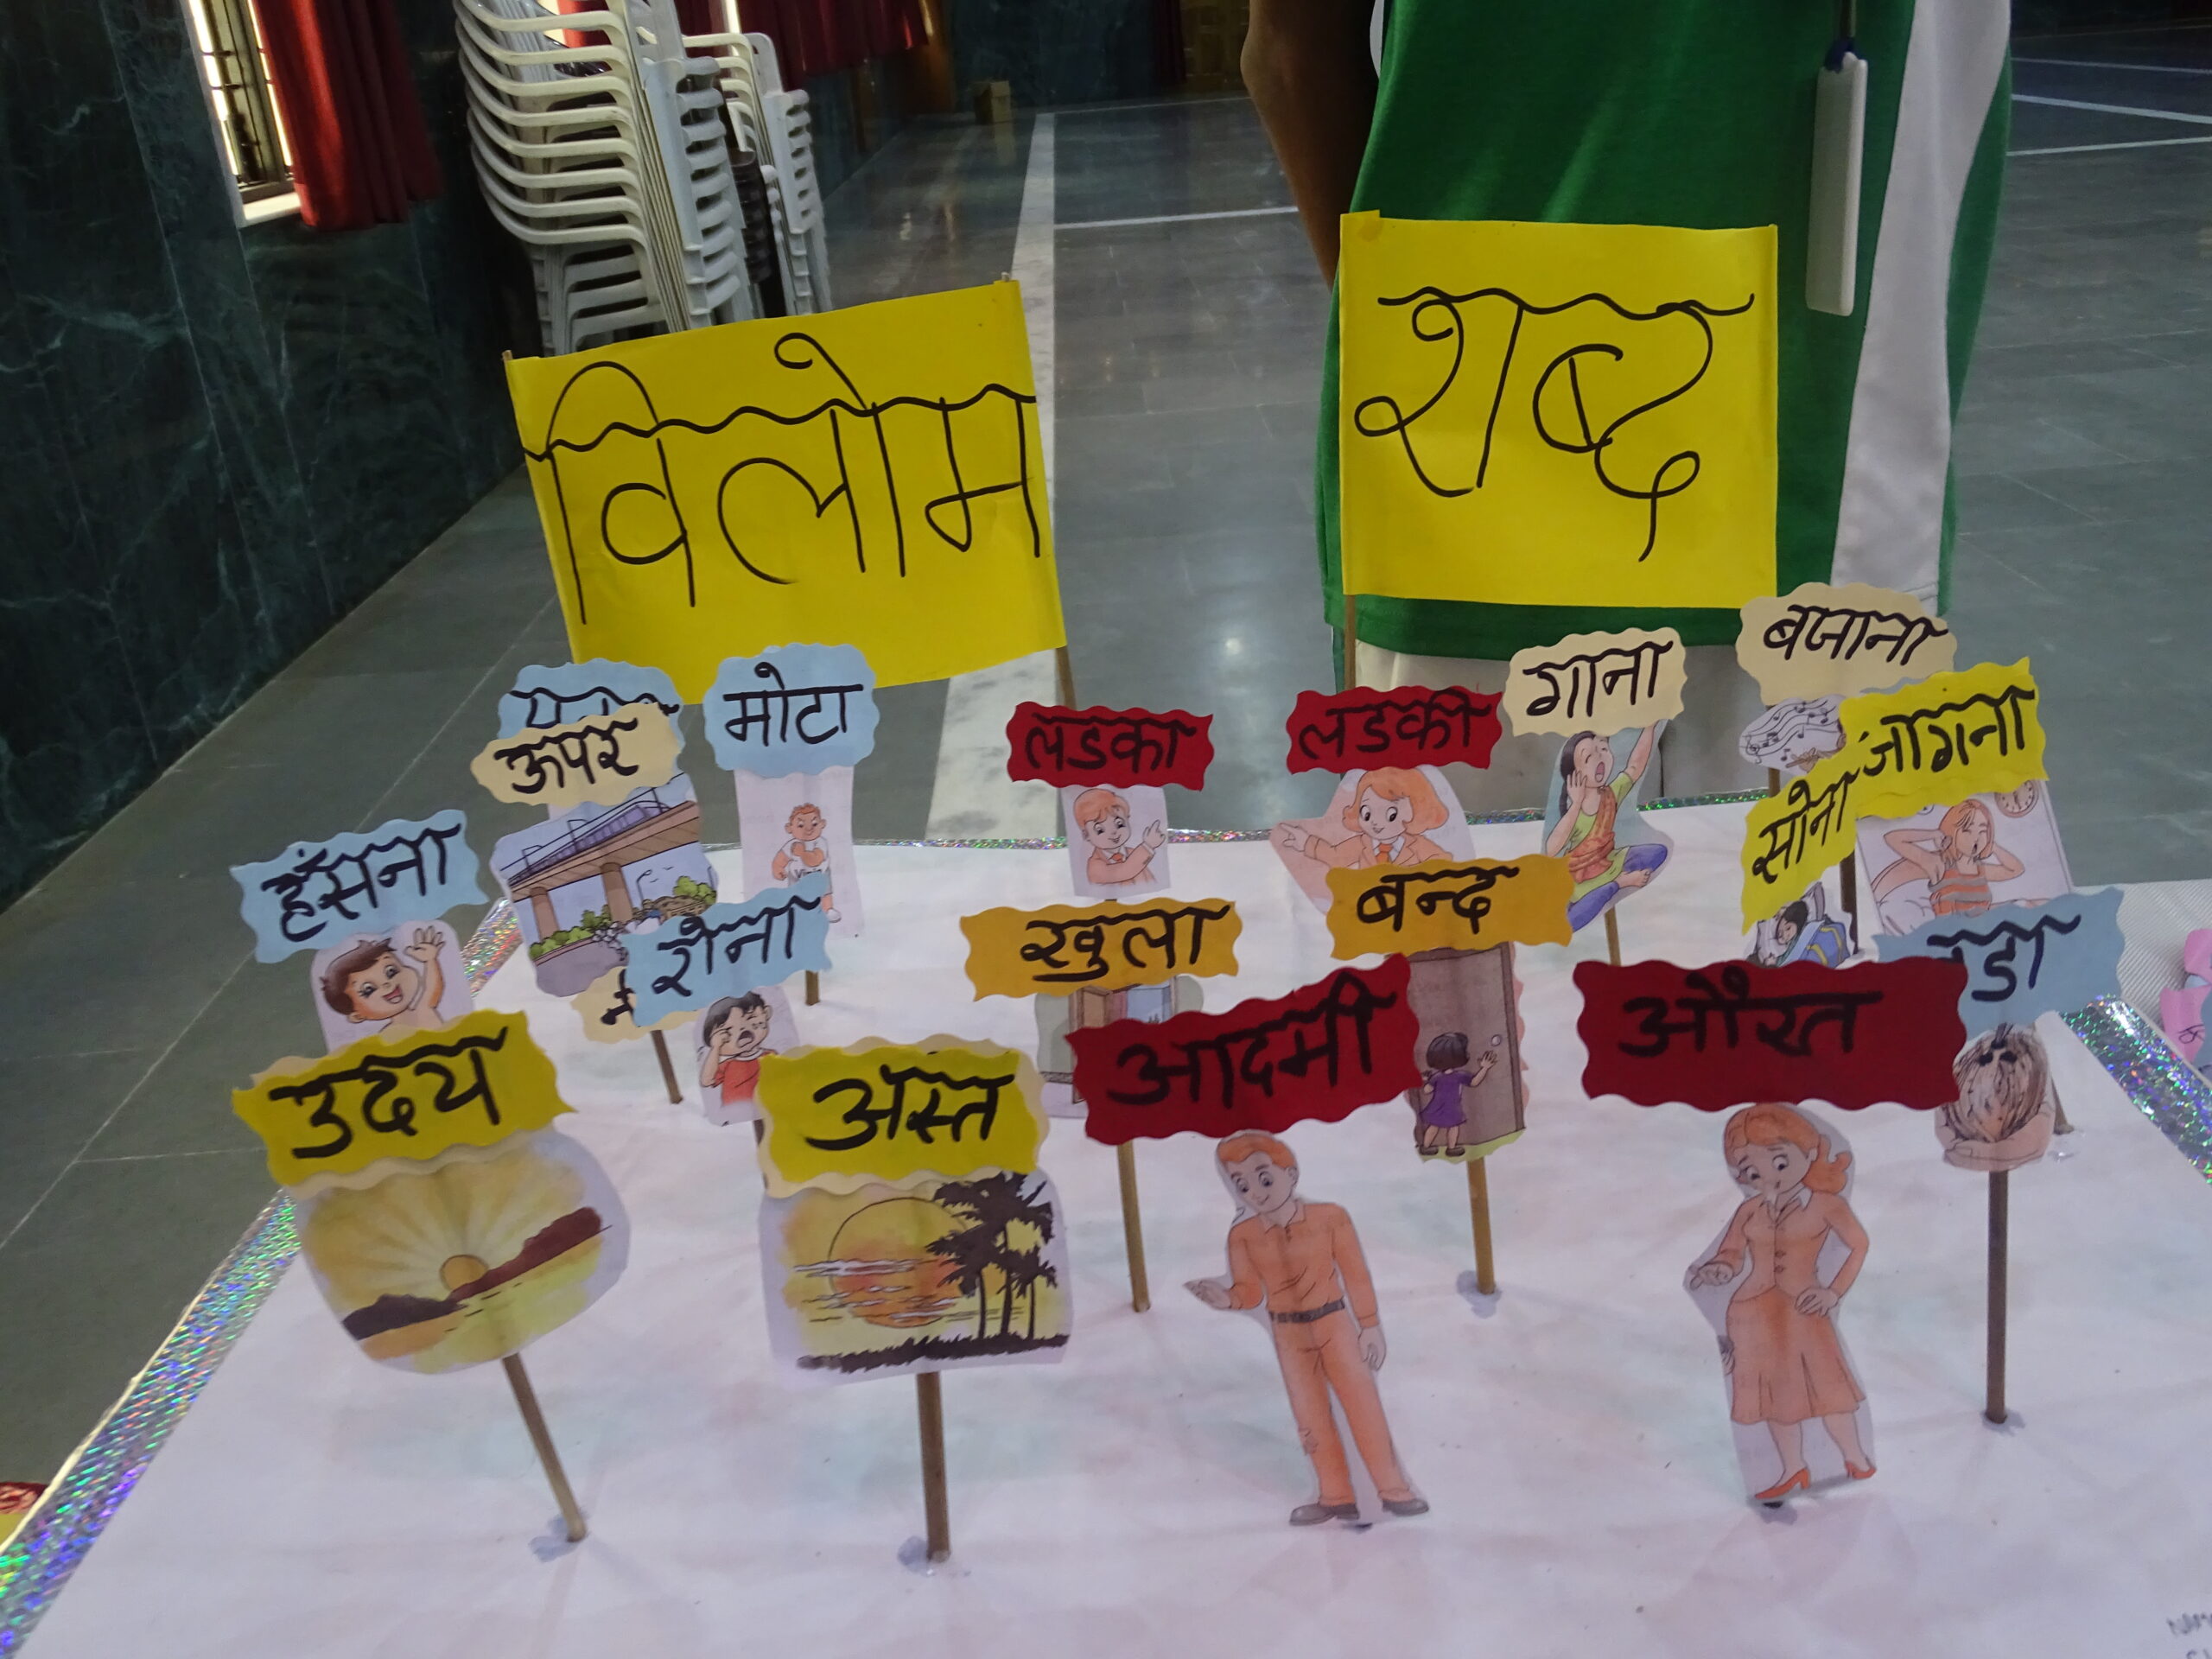 विलोम
शब्द
बजाना
गाना
मोटा
लडका
लडकी
जागना
ऊपर
सोना
हँसना
रोना
खुला
बन्द
उदय
अस्त
आदमी
औरत